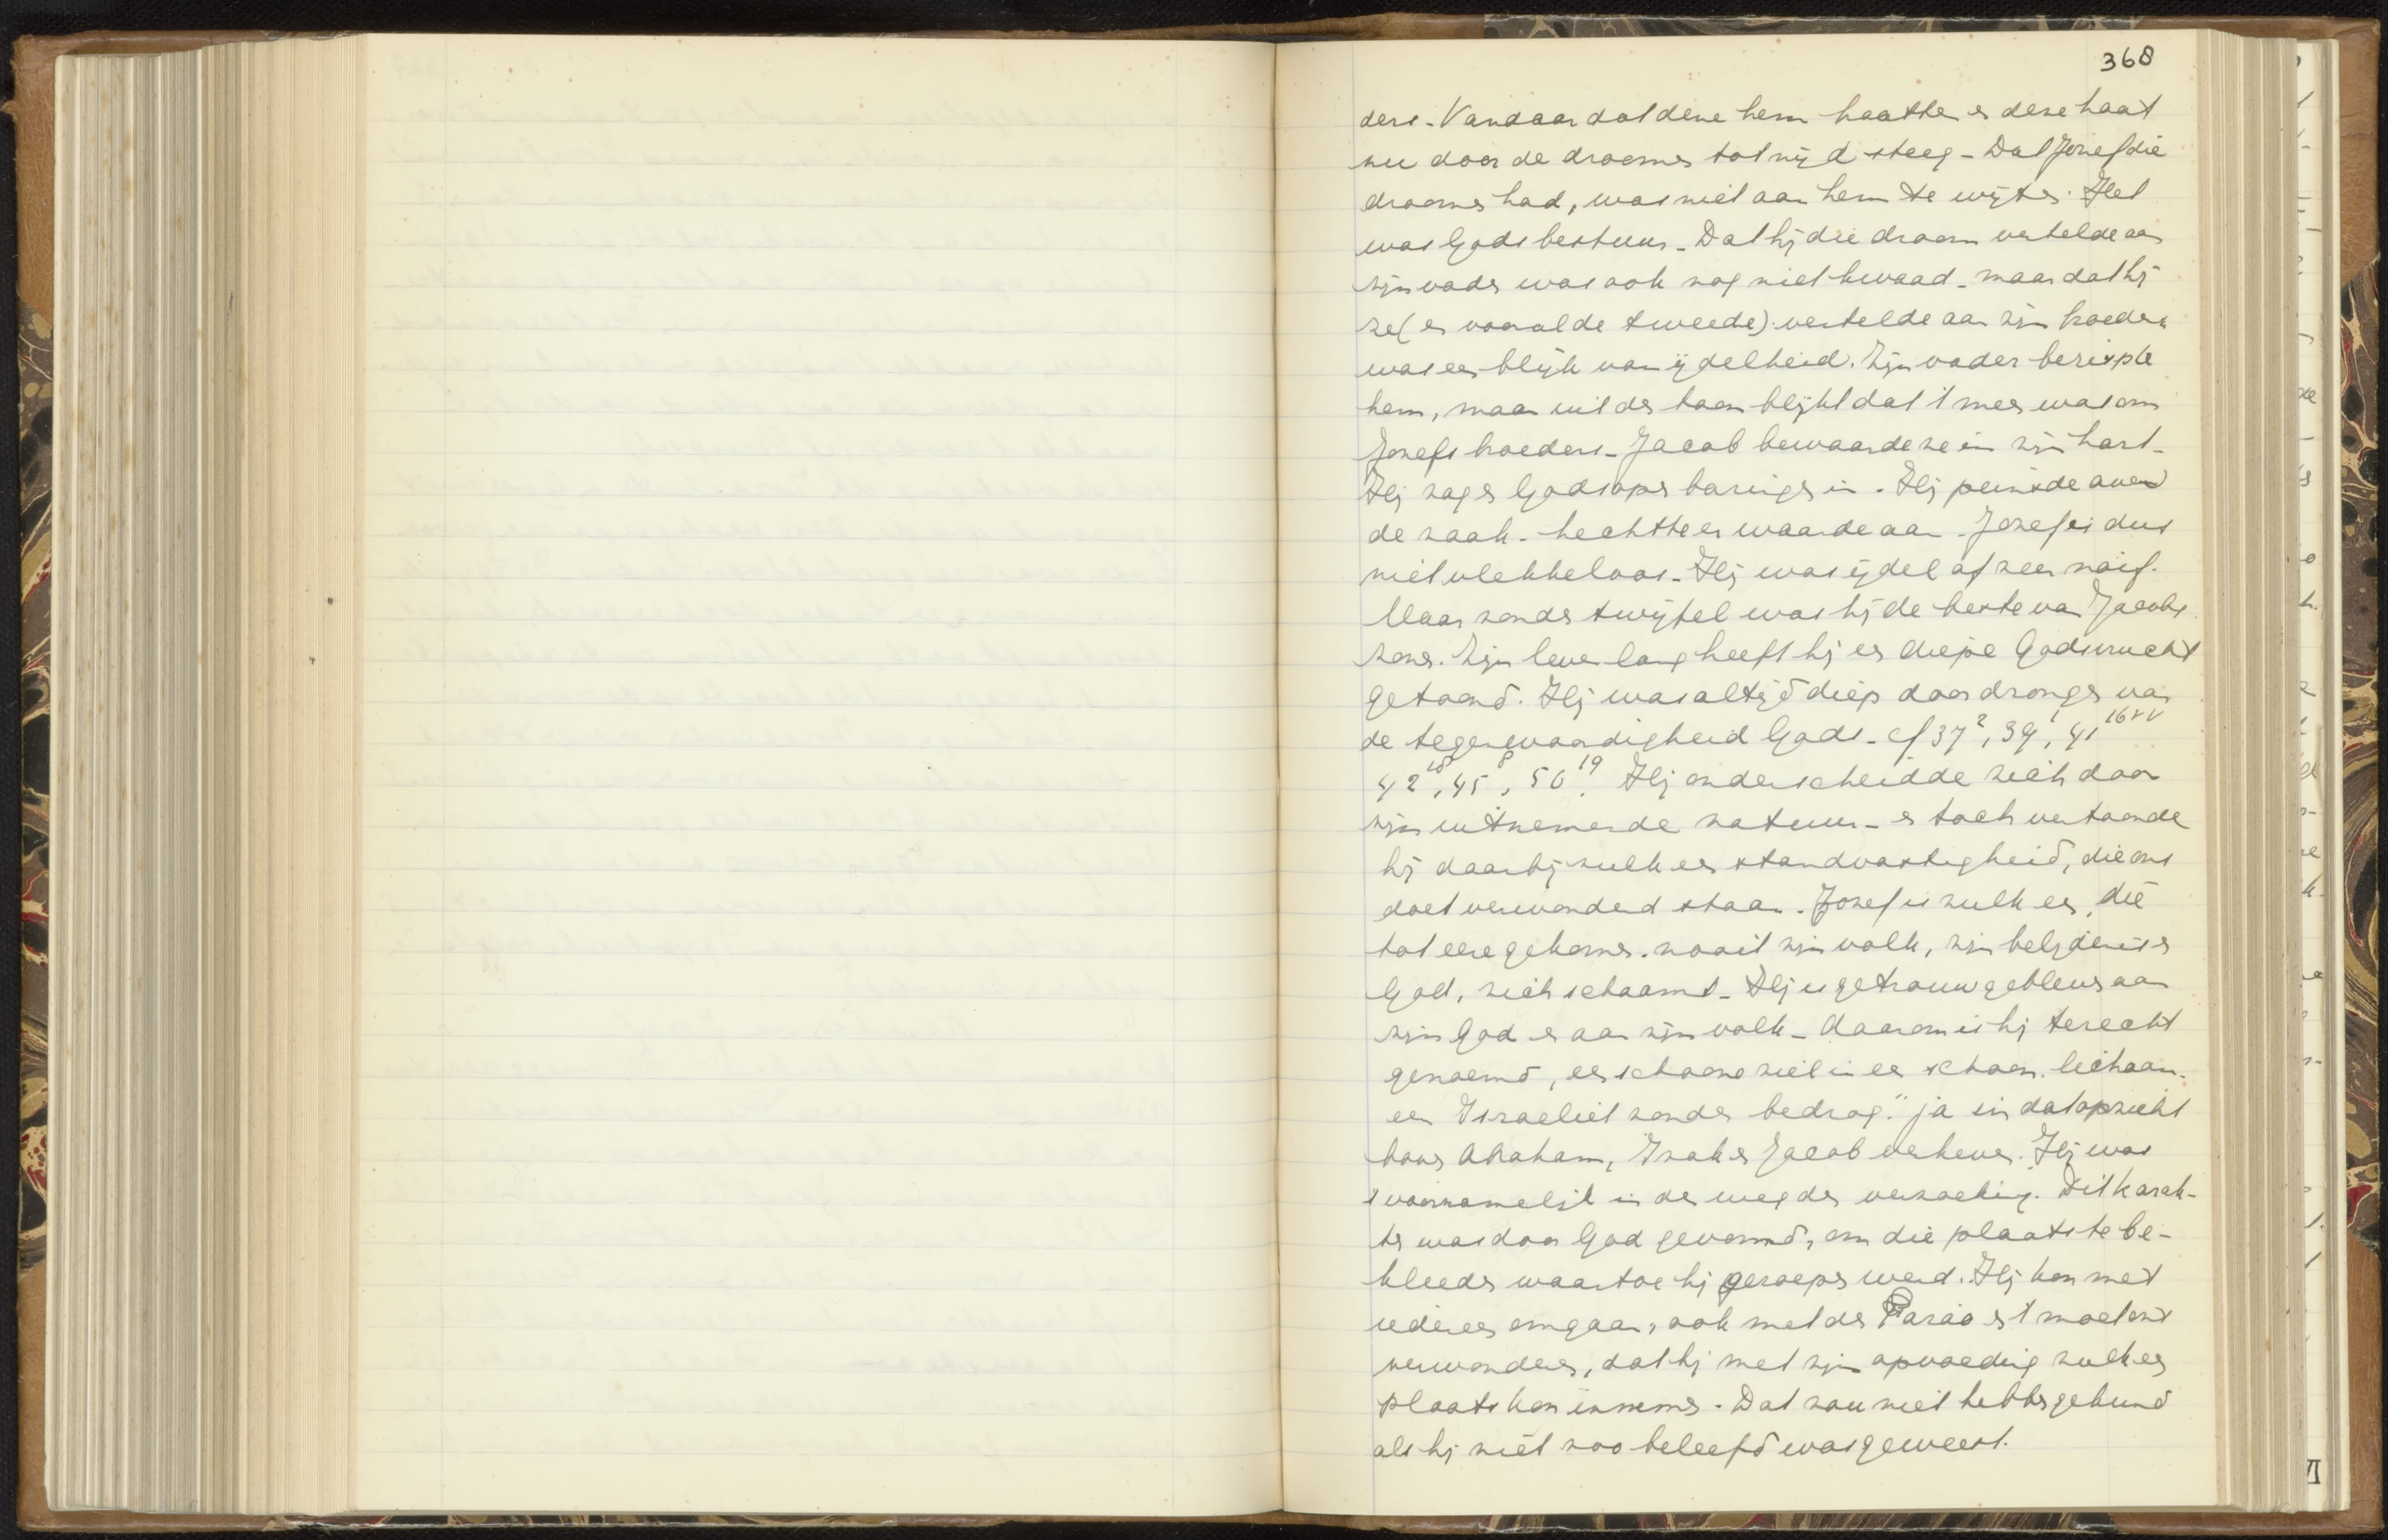 368
ders. Vandaar dat deze hem haatte en deze haat
nu door de droomen tot nijd steeg - Dat Jozef die
droomen had, was niet aan hem te wijten. Het
was Gods bestuur - Dat hij die droom vertelde aan
zijn vader was ook nog niet kwaad - maar dat hij
ze (en vooral de tweede) vertelde aan zijn broeders
was een blijk van ijdelheid. Zijn vader berispte
hem, maar uit den toon blijkt dat 't meer was om
Jozefs broeders - Jacob bewaarde ze in zijn hart -
Hij zag er Gods openbaringen in. Hij peinsde over
de zaak - hechtte er waarde aan - Jozef is dus
niet vlekkeloos - Hij was ijdel of zeer naïf.
Maar zonder twijfel was hij de beste van Jacobs
zonen. Zijn leven lang heeft hij en diepe Godsvrucht
getoond. Hij was altijd diep doordrongen van
de tegenwoordigheid Gods - cf 37², 39¹, 41¹⁶ᵛᵛ
42¹⁸, 45⁸, 50¹⁹. Hij onderscheidde zich door
zijn uitnemende natuur - en toch vertoonde
hij daarbij zulk een standvastigheid, die ons
doet verwonderd staan. Jozef is zulk een, die
tot eere gekomen. nooit zijn volk, zijn belijdenis en
God, zich schaamt - Hij is getrouw gebleven aan
zijn God en aan zijn volk - daarom is hij terecht
genoemd, een schoone ziel in een schoon lichaam.
een Israeliet zonder bedrog." ja in dat opzicht
boven Abraham, Izak en Jacob verheven. Hij was
't voornamelijk in den weg der verzoeking. Dit karak-
ter was door God gevormd, om die plaats te be-
kleeden waartoe hij geroepen werd. Hij kon met
iedereen omgaan, ook met den Farao en 't moet ons
verwonderen, dat hij met zijn opvoeding zulk een
plaats kon innemen. Dat zou niet hebben gekund
als hij niet zoo beleefd was geweest.